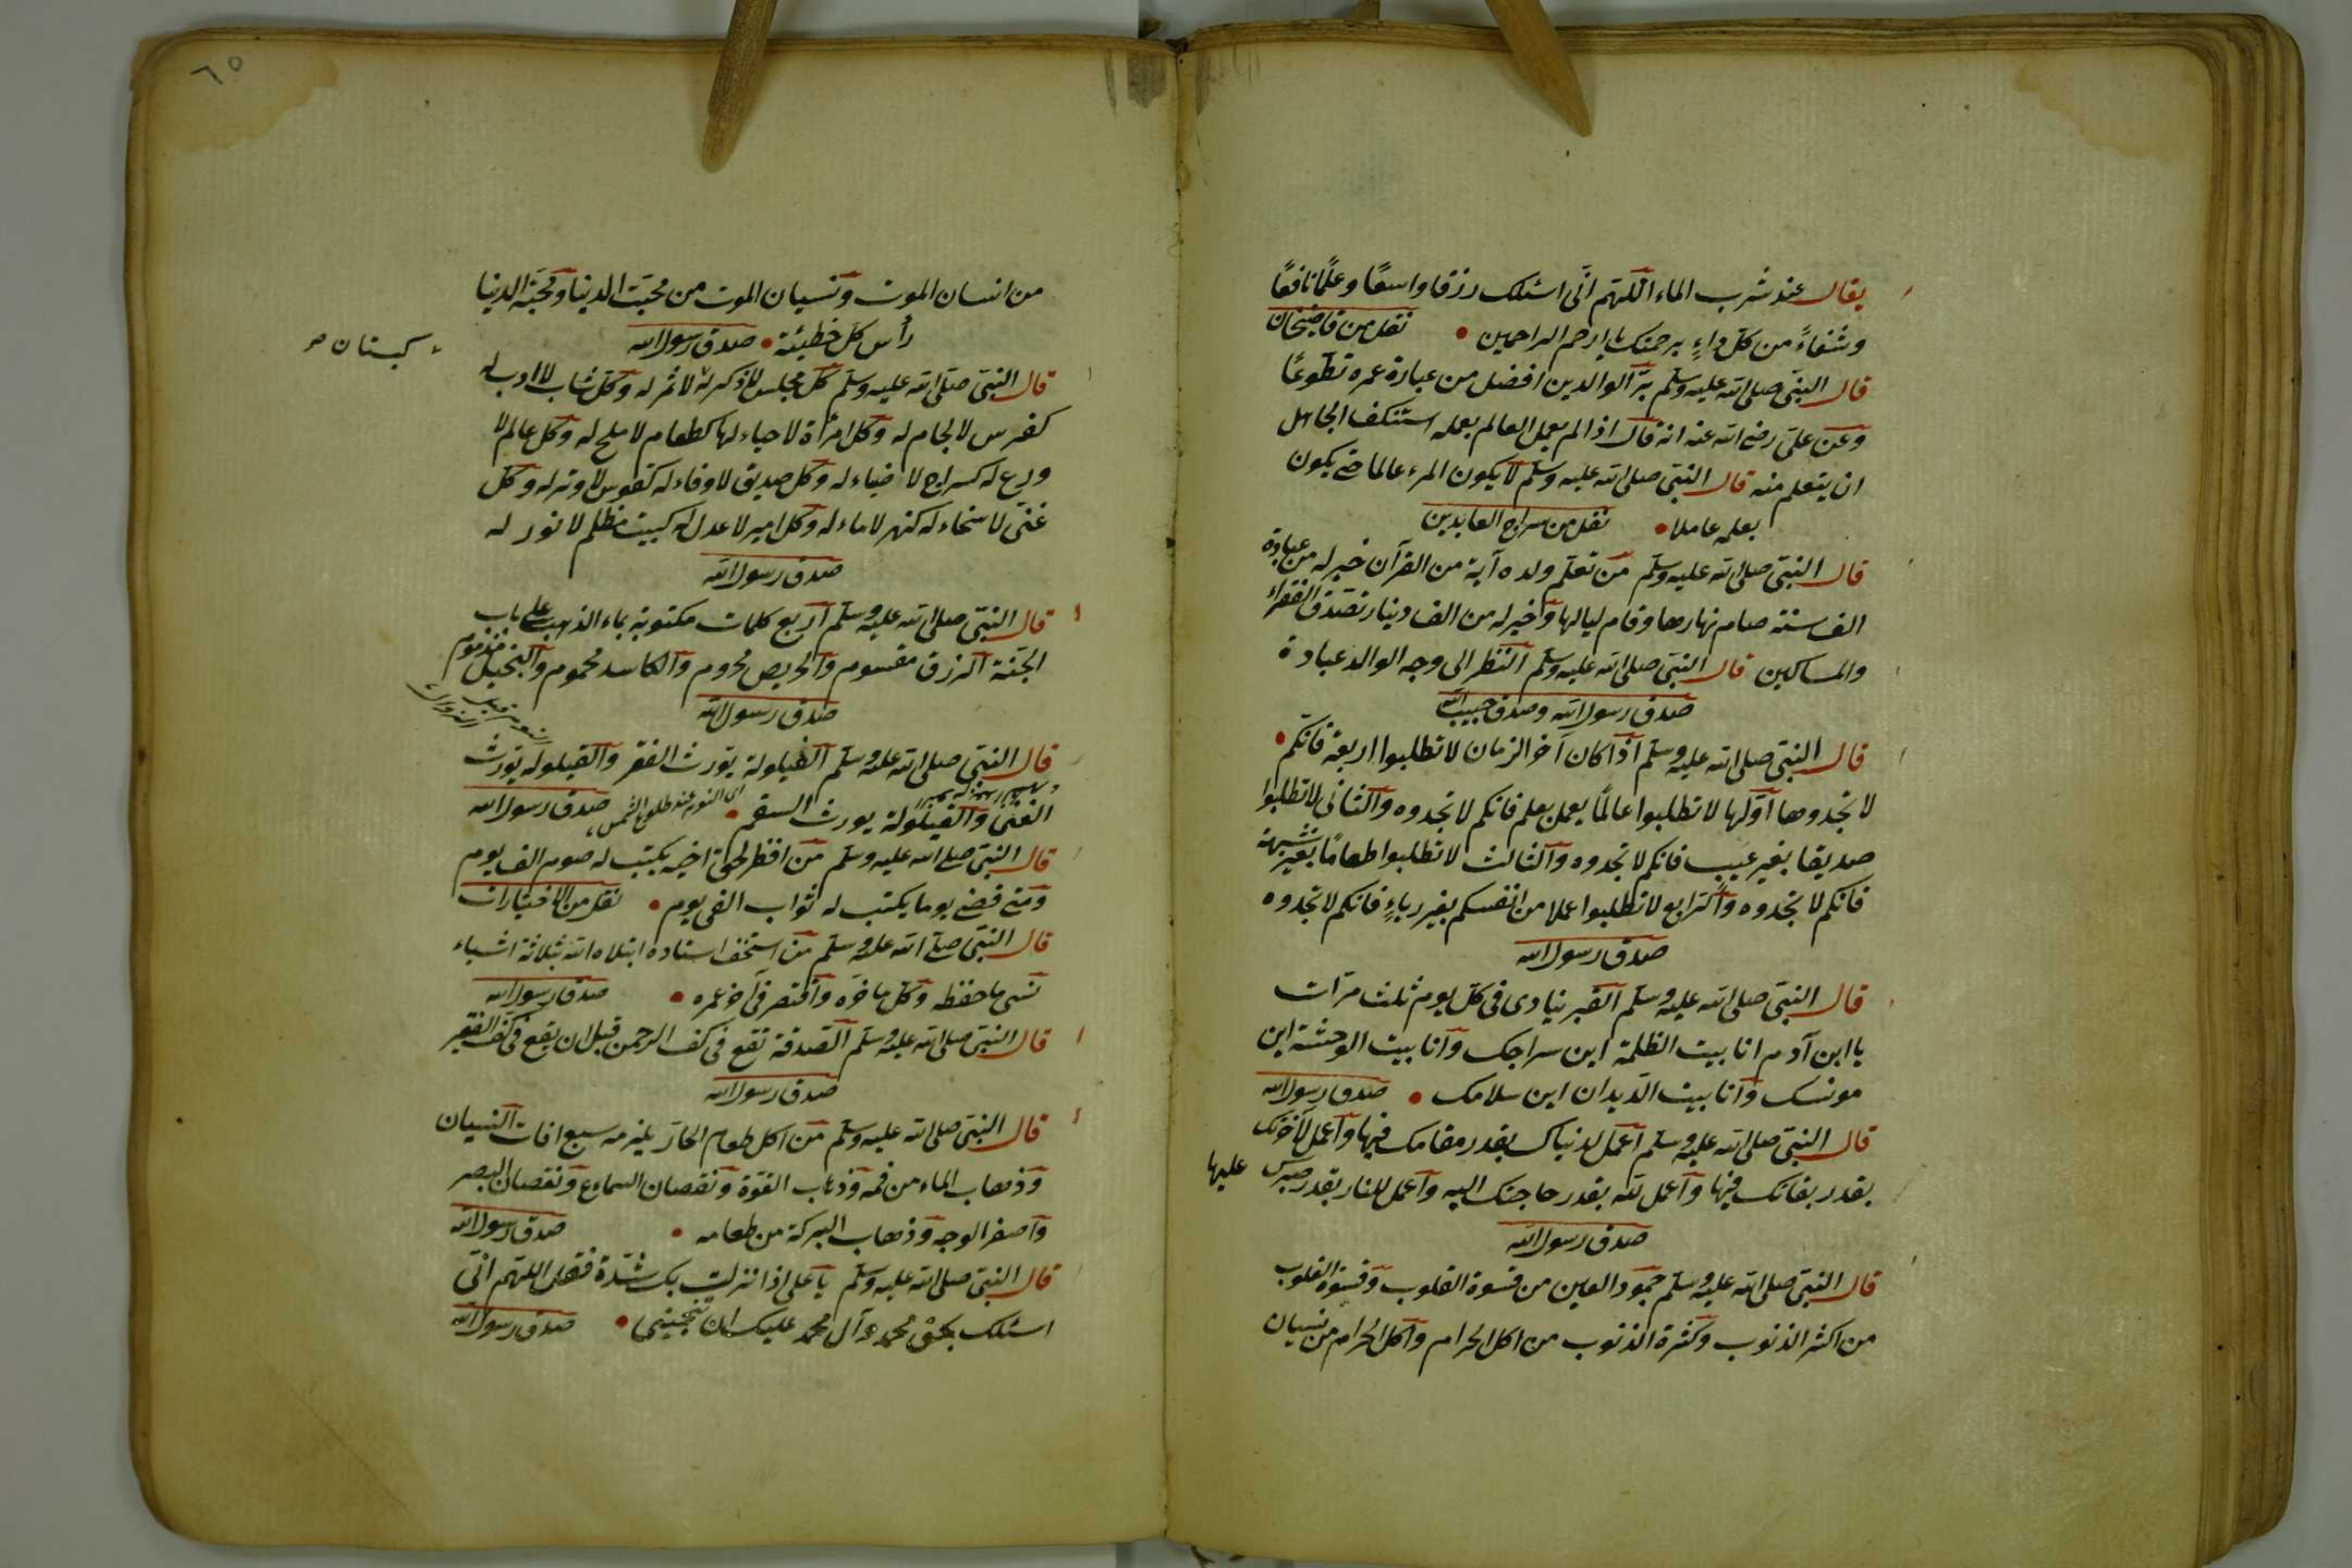 يقال عند شرب الماء اللهم انى اسئلك رزقا واسعًا وعلمًا نافعًا
وشفاءً من كل داءٍ برحمتك يا ارحم الراحمين نقل من قاضيخان
قال النبى صلى الله عليه وسلم برّ الوالدين افضل من عبادة عمره تطوعًا
وعن على رضى الله عنه انه قال اذا لم يعمل العالم بعلمه استنكف الجاهل
ان يتعلم منه قال النبى صلى الله عليه وسلم لا يكون المرء عالما حتى يكون
بعلمه عاملا نقل من سراج العابدين
قال النبى صلى الله عليه وسلم من تعلم ولده آية من القرآن خير له من عبادة
الف سنة صام نهارها وقام ليالها وخير له من الف دينار تصدق الفقراء
والمساكين قال النبى صلى الله عليه وسلم النظر الى وجه الوالد عبادة
صدق رسول الله وصدق حبيب الله
قال النبى صلى الله عليه وسلم اذا كان آخر الزمان لا تطلبوا اربعة فانكم
لا تجدوها اولها لا تطلبوا عالمًا يعمل بعلم فانكم لا تجدوه والثانى لا تطلبوا
صديقا بغير عيب فانكم لا تجدوه والثالث لا تطلبوا طعامًا بغير شبهة
فانكم لا تجدوه والرابع لا تطلبوا عملا من انفسكم بغير رياءٍ فانكم لا تجدوه
صدق رسول الله
قال النبى صلى الله عليه وسلم القبر ينادى فى كل يوم ثلث مرّات
يا ابن آدم انا بيت الظلمة اين سراجك وانا بيت الوحشة اين
مونسك وانا بيت الديدان اين سلامك صدق رسول الله
قال النبى صلى الله عليه وسلم اعمل لدنياك بقدر مقامك فيها واعمل لآخرتك
بقدر بقائك فيها واعمل لله بقدر حاجتك اليه واعمل للنار بقدر صبرك عليها
صدق رسول الله
قال النبى صلى الله عليه وسلم جمود العين من قسوة القلوب وقسوة القلوب
من اكثر الذنوب وكثرة الذنوب من اكل الحرام واكل الحرام من نسيان
٦٥
من انسان الموت ونسيان الموت من محبت الدنيا ومحبّة الدنيا
رأس كل خطيئة صدق رسول الله
قال النبى صلى الله عليه وسلم كل مجلس لا ذكر له لا ثمر له وكل شاب لا ادب له
كفرس لا لجام له وكل امرأة لا حياء لها كطعام لا ملح له وكل عالم لا
ورع له كسراج لا ضياء له وكل صديق لا وفاء له كقوس لا وتر له وكل
غنى لا سخاء له كنهر لا ماء له وكل امير لا عدل له كبيت مظلم لا نور له
كبستان
صدق رسول الله
قال النبى صلى الله عليه وسلم اربع كلمات مكتوبة بماء الذهب على باب
الجنة الرزق مقسوم والحريص محروم والحاسد محموم والبخيل مذموم
صدق رسول الله
قال النبى صلى الله عليه وسلم الغيلولة يورث الفقر والقيلوله يورث
الغنى والفيلولة يورث السقم اى النوم عند طلوع الشمس صدق رسول الله
قال النبى صلى الله عليه وسلم من افطر لحق اخيه يكتب له صوم الف يوم
ومتى قضى يوما يكتب له ثواب الفى يوم نقل من الاختيارات
قال النبى صلى الله عليه وسلم من استخف استاده ابتلاه الله بثلاثة اشياء
نسى ما حفظه وكل ما خره وافتقر فى آخر عمره صدق رسول الله
قال النبى صلى الله عليه وسلم الصدقة تقع فى كف الرحمن قبل ان يقع فى كف الفقير
صدق رسول الله
قال النبى صلى الله عليه وسلم من اكل طعام الحار يلزمه سبع افات النسيان
وذهاب الماء من فمه وذهاب القوة ونقصان السماع ونقصان البصر
واصفر الوجه وذهاب البركة من طعامه صدق رسول الله
قال النبى صلى الله عليه وسلم يا على اذا نزلت بك شدّة فقل اللهم انى
اسئلك بحق محمد وآل محمد عليك ان تنجينى صدق رسول الله